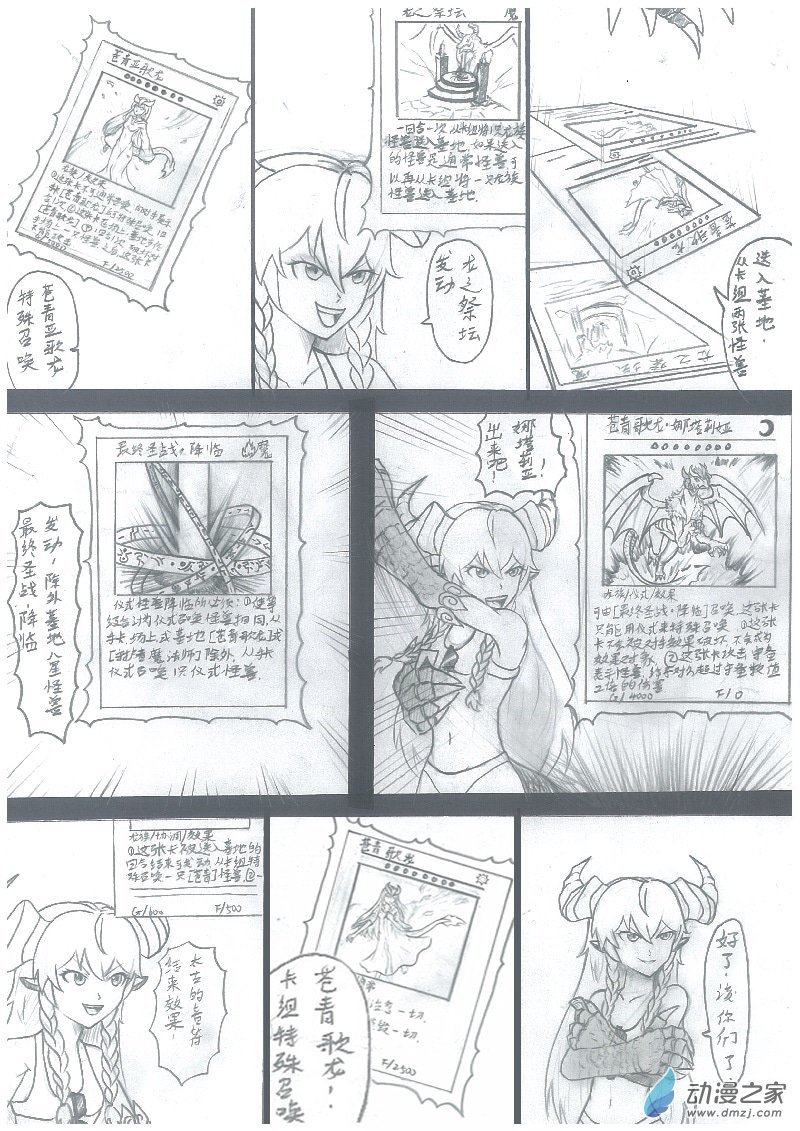 苍青亚歌龙
F/2500
苍青亚歌龙
特殊召唤
龙之祭坛 魔
一回合一次 从卡组将1只龙族
怪兽送入墓地. 如果送入
的怪兽是通常怪兽可
以再从卡组将一只龙族
怪兽送入墓地.
龙之祭坛
发动
苍青歌龙
龙之祭坛 魔
从卡组两张怪兽
送入墓地.
最终圣战·降临 魔
仪式怪兽降临的必须:①使等
级合计与仪式召唤怪兽相同,从
手卡场上或墓地[苍青歌龙]或
除外,从手卡
仪式召唤1只仪式怪兽.
发动!除外墓地八星怪兽
最终圣战·降临
娜塔莉亚!
出来吧!
苍青歌龙·娜塔莉娅
龙族/仪式/效果
可由[最终圣战·降临]召唤.这张卡
只能用仪式来特殊召唤 ①这张
卡不会被对手效果破坏,不会成为
效果对象 ②这张卡攻击守备
表示怪兽,给予对方超过守备数值
工存的伤害
G/4000 F/0
龙族/协调/效果
①这张卡被送入墓地的
回合结束时发动.从卡组特
殊召唤一只[苍青]怪兽.②
G/600 F/500
太古的音符
结束效果!
苍青歌龙
一切.
一切.
F/2500
苍青歌龙!
卡组特殊召唤
好了!该你们了!
动漫之家
www.dmzj.com